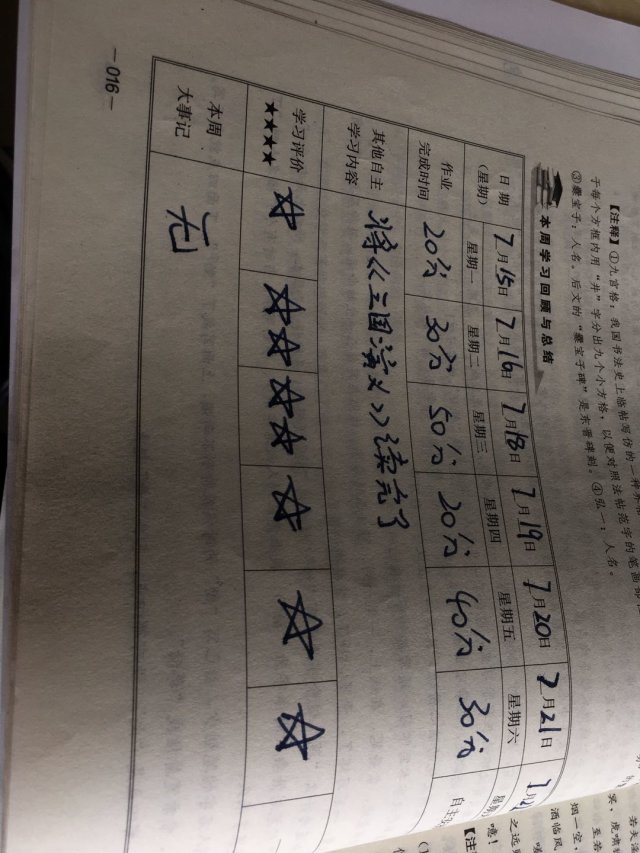 【注释】①九宫格：我国书法史上临帖写仿的一种界格
于每个方框内用“井”字分出九个小方格，以便对照法帖范字的笔画部
③爨宝子：人名。后文的“爨宝子碑”是东晋碑刻。④弘一：人名。
本周学习回顾与总结
日期（星期） 7月15日 星期一 7月16日 星期二 7月18日 星期三 7月19日 星期四 7月20日 星期五 7月21日 星期六
作业完成时间 20分 30分 50分 20分 40分 30分 自主
其他自主学习内容 将《三国演义》读完了
学习评价 ★★★★ ☆ ☆☆ ☆☆ ☆ ☆ ☆
本周大事记 无
—016—